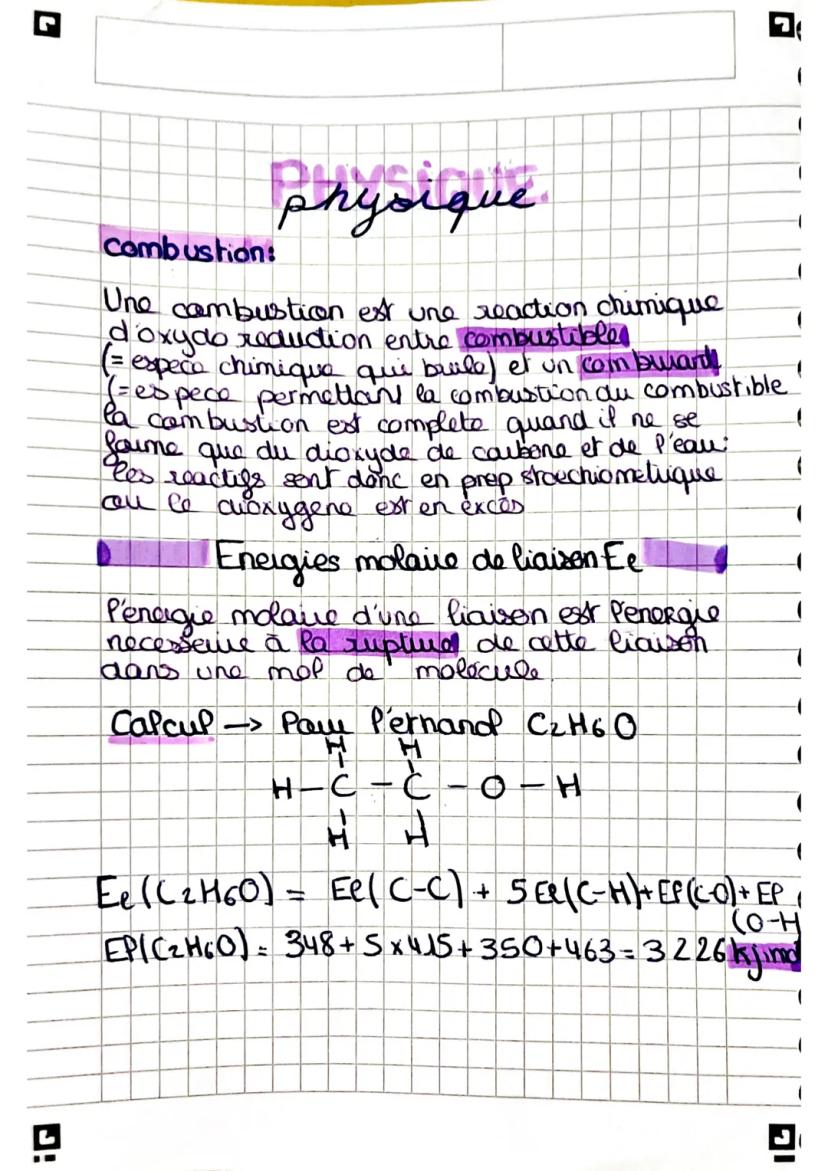 PHYSIQUE.
physique
combustion:
Une combustion est une reaction chimique
d'oxydo reduction entre combustible
(= espece chimique qui brule) et un comburant
(= espece permettant la combustion du combustible
la combustion est complete quand il ne se
forme que du dioxyde de carbone et de l'eau:
les reactifs sont donc en prop stoechiometrique
ou le dioxygene est en excès
Energies molaire de liaison El
l'energie molaire d'une liaison est l'energie
necessaire à la rupture de cette liaison
dans une mol de molecule.
Calcul → Pour l'ethanol C2H6O
H H
H - C - C - O - H
H H
El (C2H6O) = El( C-C) + 5 El(C-H)+ El(C-O)+ El
(O-H
El(C2H6O) = 348 + 5 x 415 + 350 + 463 = 3 226 kj.mol